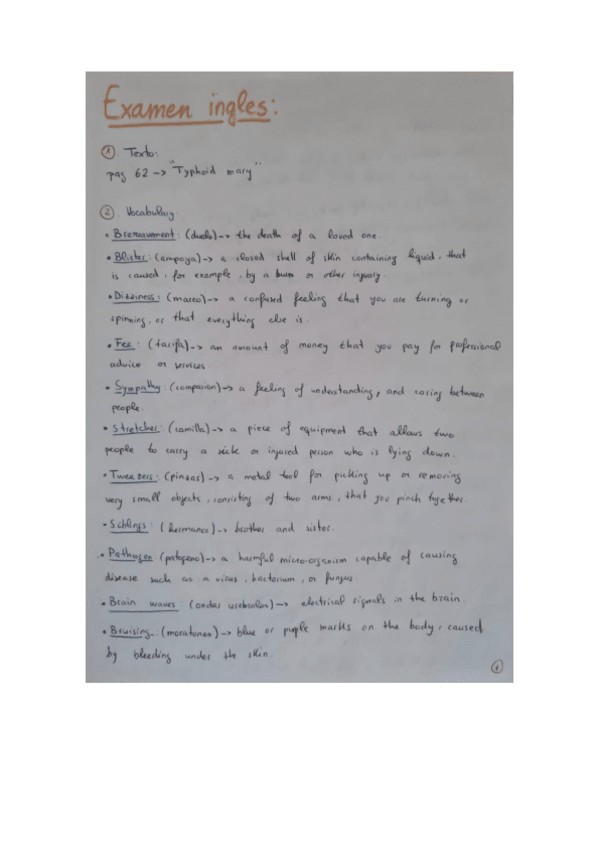 Examen ingles:
1. Texto:
pag 62 -> "Typhoid mary"
2. Vocabulary.
• Bereavument: (duelo) -> the death of a loved one.
• Blister: (ampoya) -> a closed shell of skin containing liquid, that
is caused, for example, by a burn or other injury.
• Dizziness: (mareo) -> a confused feeling that you are turning or
spinning, or that everything else is.
• Fee: (tarifa) -> an amount of money that you pay for professional
advice or services.
• Sympathy: (compasion) -> a feeling of understanding, and caring between
people.
• Stretcher: (camilla) -> a piece of equipment that allows two
people to carry a sick or injured person who is lying down.
• Tweezers: (pinzas) -> a metal tool for picking up or removing
very small objects, consisting of two arms, that you pinch together.
• Siblings: (hermanos) -> brother and sister.
• Pathogen (patogeno) -> a harmful micro-organism capable of causing
disease such as a virus, bacterium, or fungus.
• Brain waves: (ondas cerebrales) -> electrical signals in the brain.
• Bruising: (moratones) -> blue or purple marks on the body, caused
by bleeding under the skin.
1